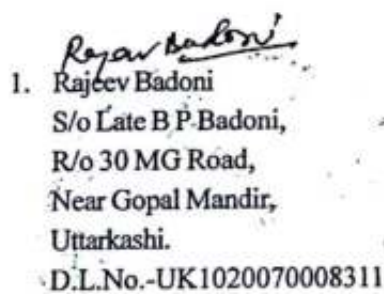 Rajeev Badoni
1. Rajeev Badoni
S/o Late B P Badoni,
R/o 30 MG Road,
Near Gopal Mandir,
Uttarkashi.
D.L.No.-UK1020070008311